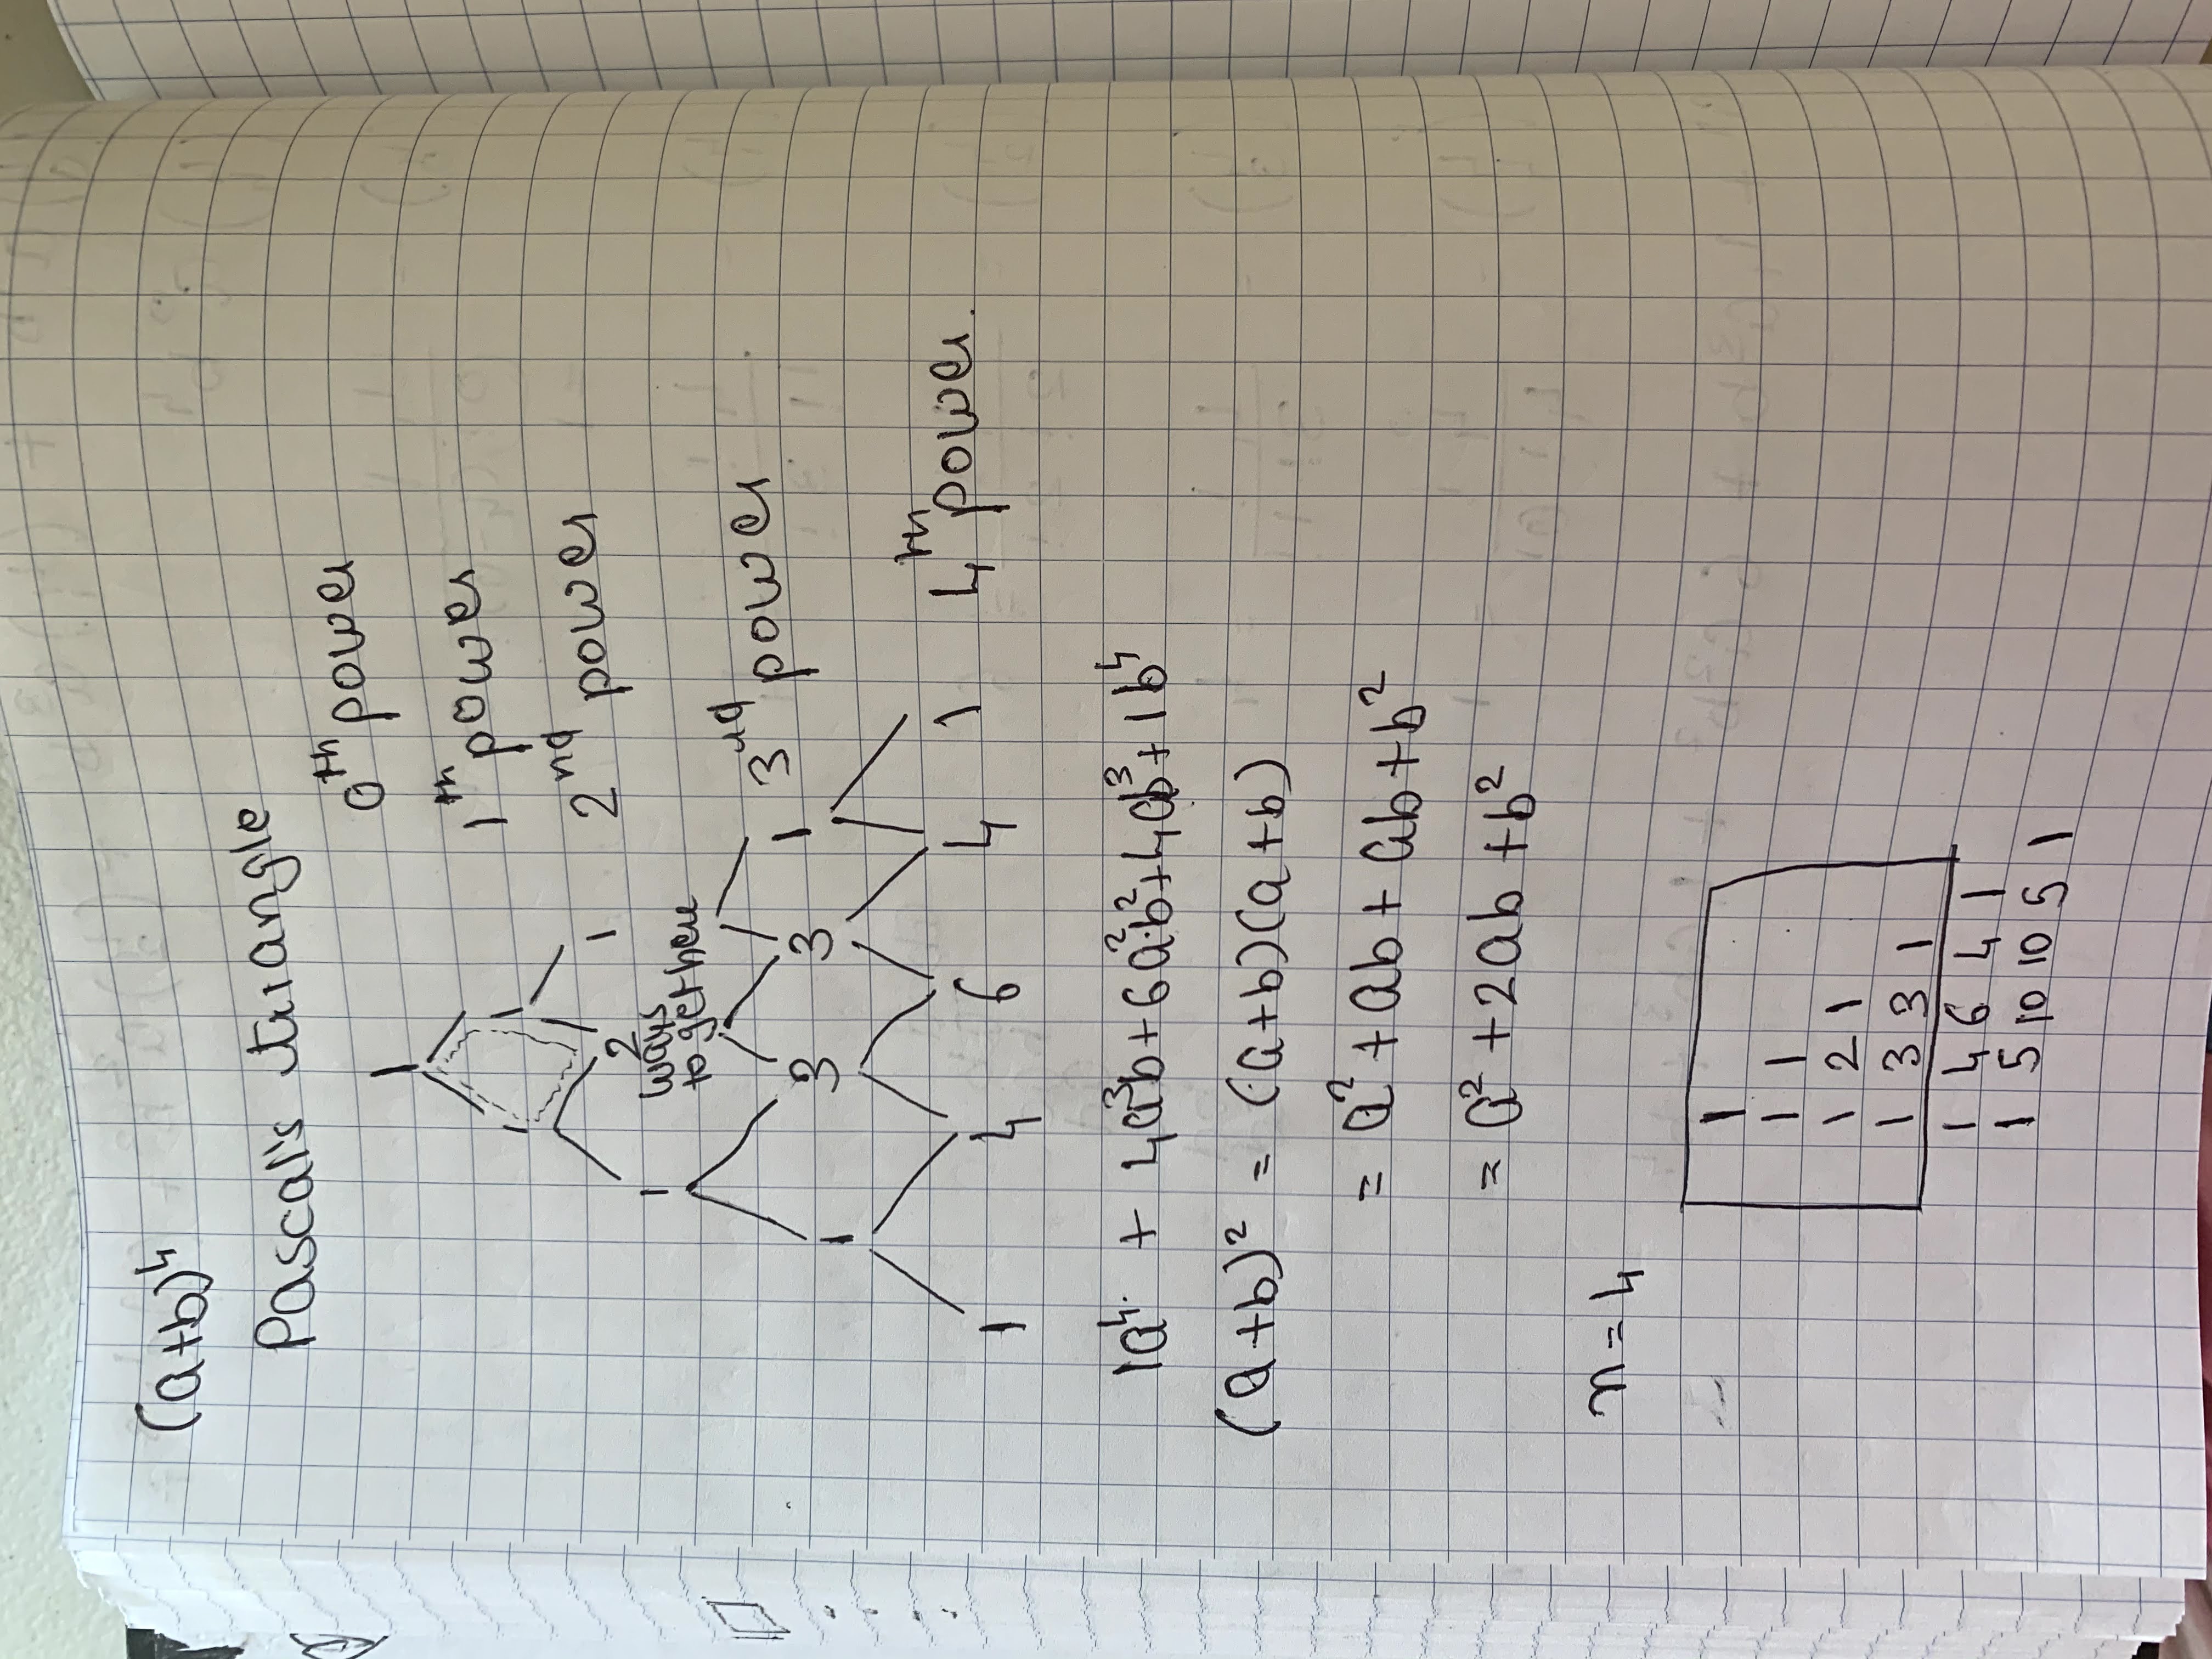 (a+b)⁴
Pascal's triangle
1 0ᵗʰ power
1 1 1ᵗʰ power
1 2 1 2ⁿᵈ power
ways
to get here
1 3 3 1 3ʳᵈ power
1 4 6 4 1 4ᵗʰ power.
1a⁴ + 4a³b+6a²b²+4ab³+1b⁴
(a+b)² = (a+b)(a+b)
= a² + ab + ab + b²
= a² + 2ab + b²
n = 4
1
1 1
1 2 1
1 3 3 1
1 4 6 4 1
1 5 10 10 5 1